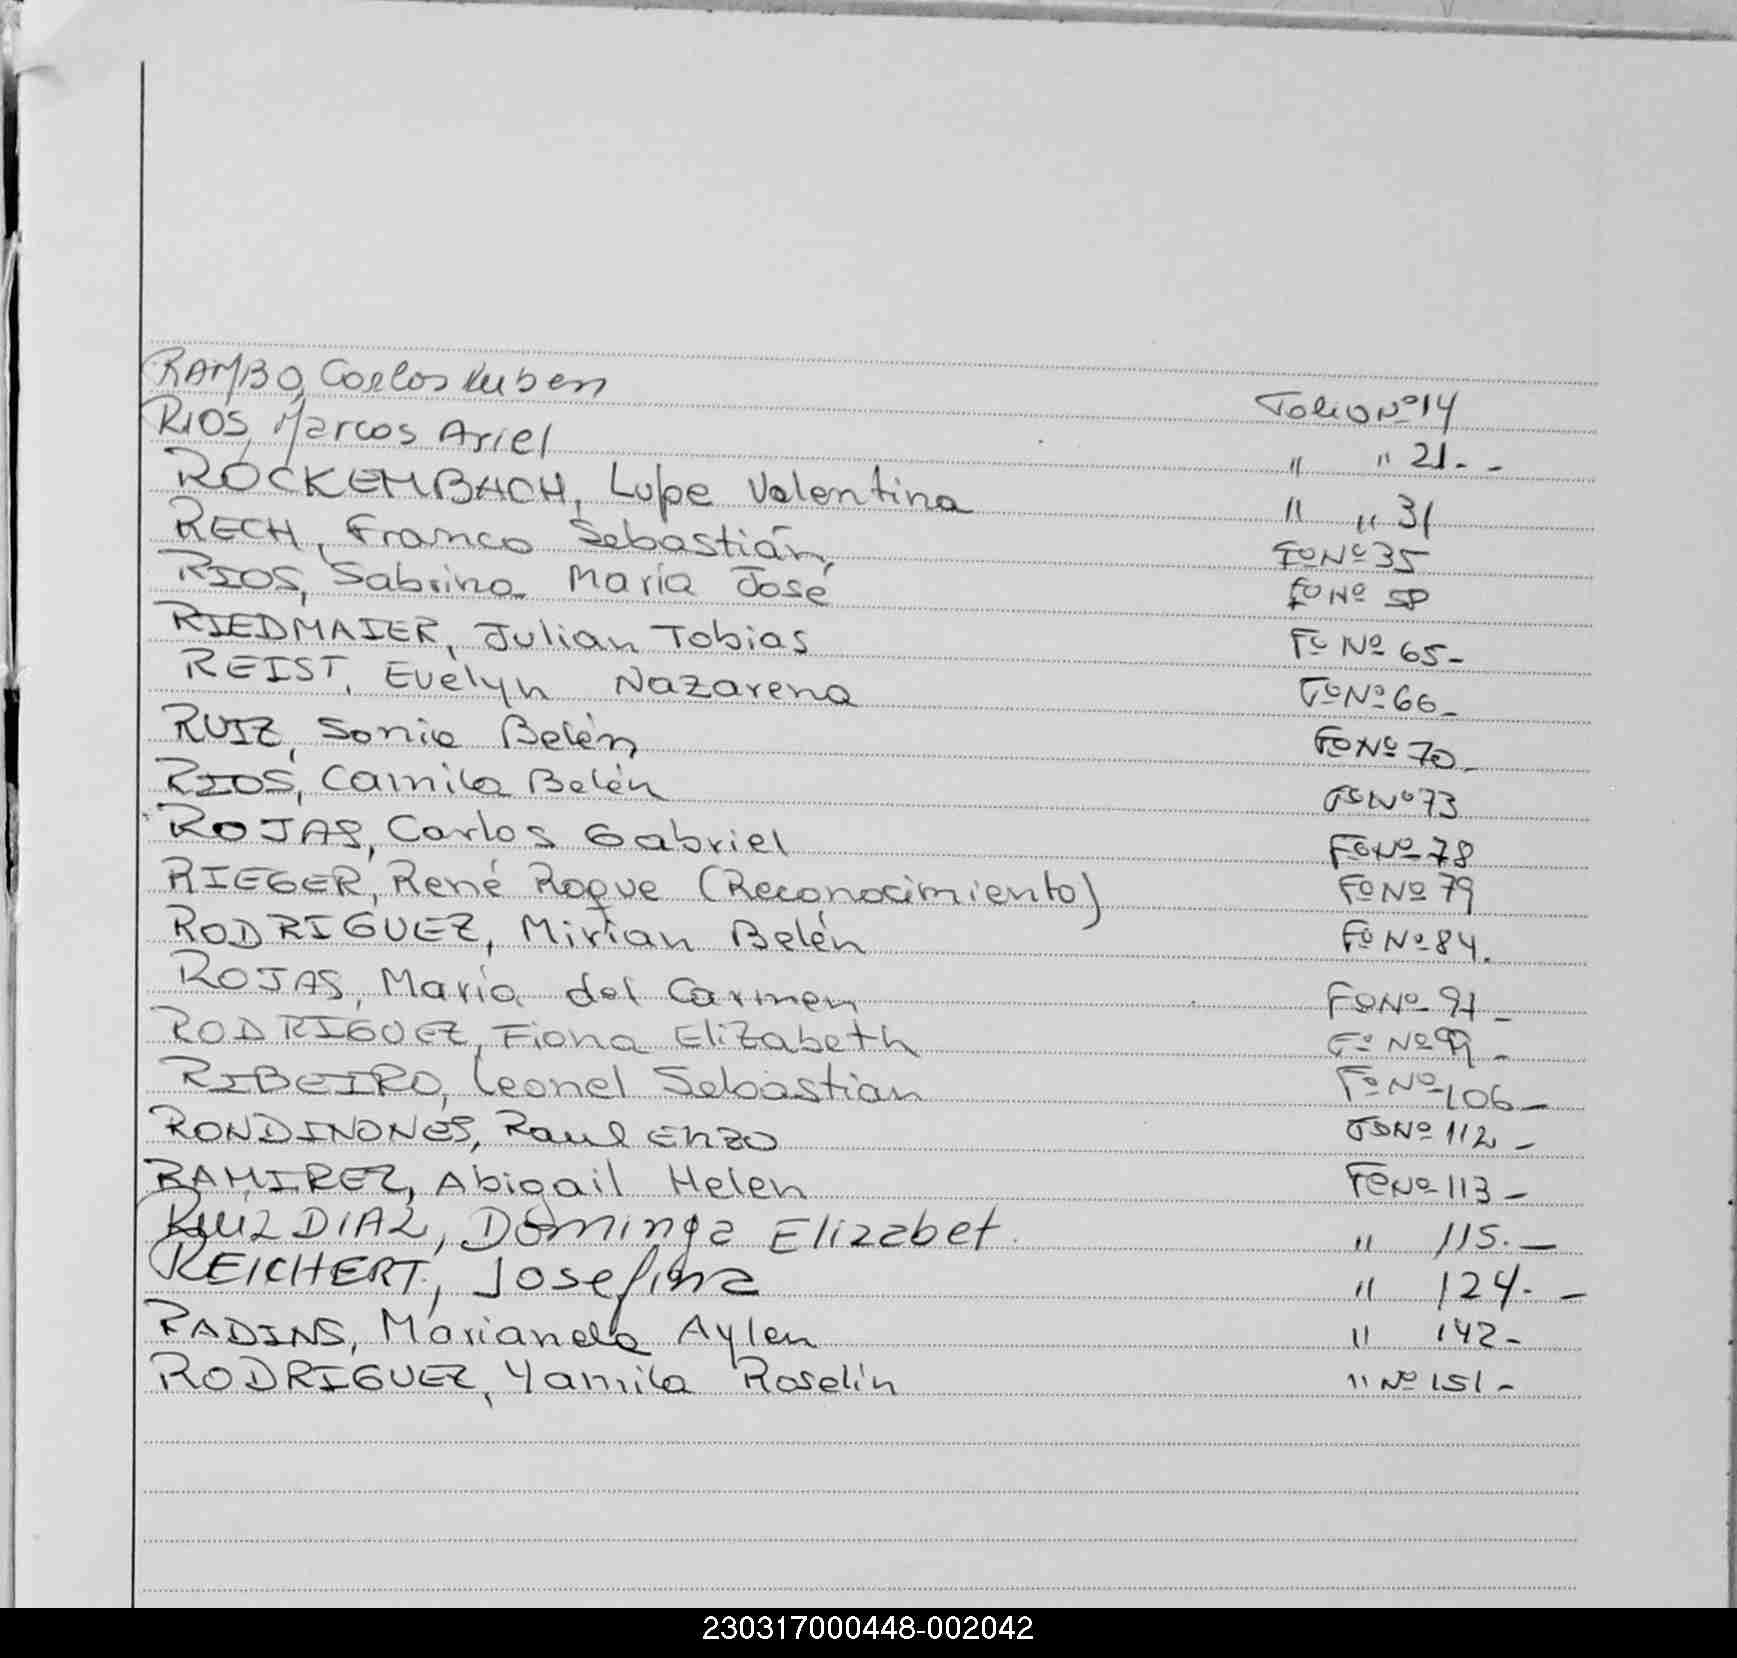 RAMBO, Carlos Ruben Folio Nº 14
RIOS, Marcos Ariel " " 21. -
ROCKEMBACH, Lupe Valentina " " 31
RECH, Franco Sebastián, Fº Nº 35
RIOS, Sabrina María José Fº Nº 58
RIEDMAIER, Julian Tobias Fº Nº 65-
REIST, Evelyn Nazarena Fº Nº 66-
RUIZ, Sonia Belén Fº Nº 70-
RIOS, Camila Belén Fº Nº 73
ROJAS, Carlos Gabriel Fº Nº 78
RIEGER, René Roque (Reconocimiento) Fº Nº 79
RODRIGUEZ, Mirian Belén Fº Nº 84.
ROJAS, María del Carmen Fº Nº 91-
RODRIGUEZ, Fiona Elizabeth Fº Nº 99-
RIBEIRO, Leonel Sebastian Fº Nº 106-
RONDINONES, Raul Enzo Fº Nº 112-
RAMIREZ, Abigail Helen Fº Nº 113-
RUIZ DIAZ, Dominga Elizabet. " 115.-
REICHERT, Josefina " 124.-
RADINS, Marianela Aylen " 142-
RODRIGUEZ, Yamila Roselin " Nº 151-
230317000448-002042